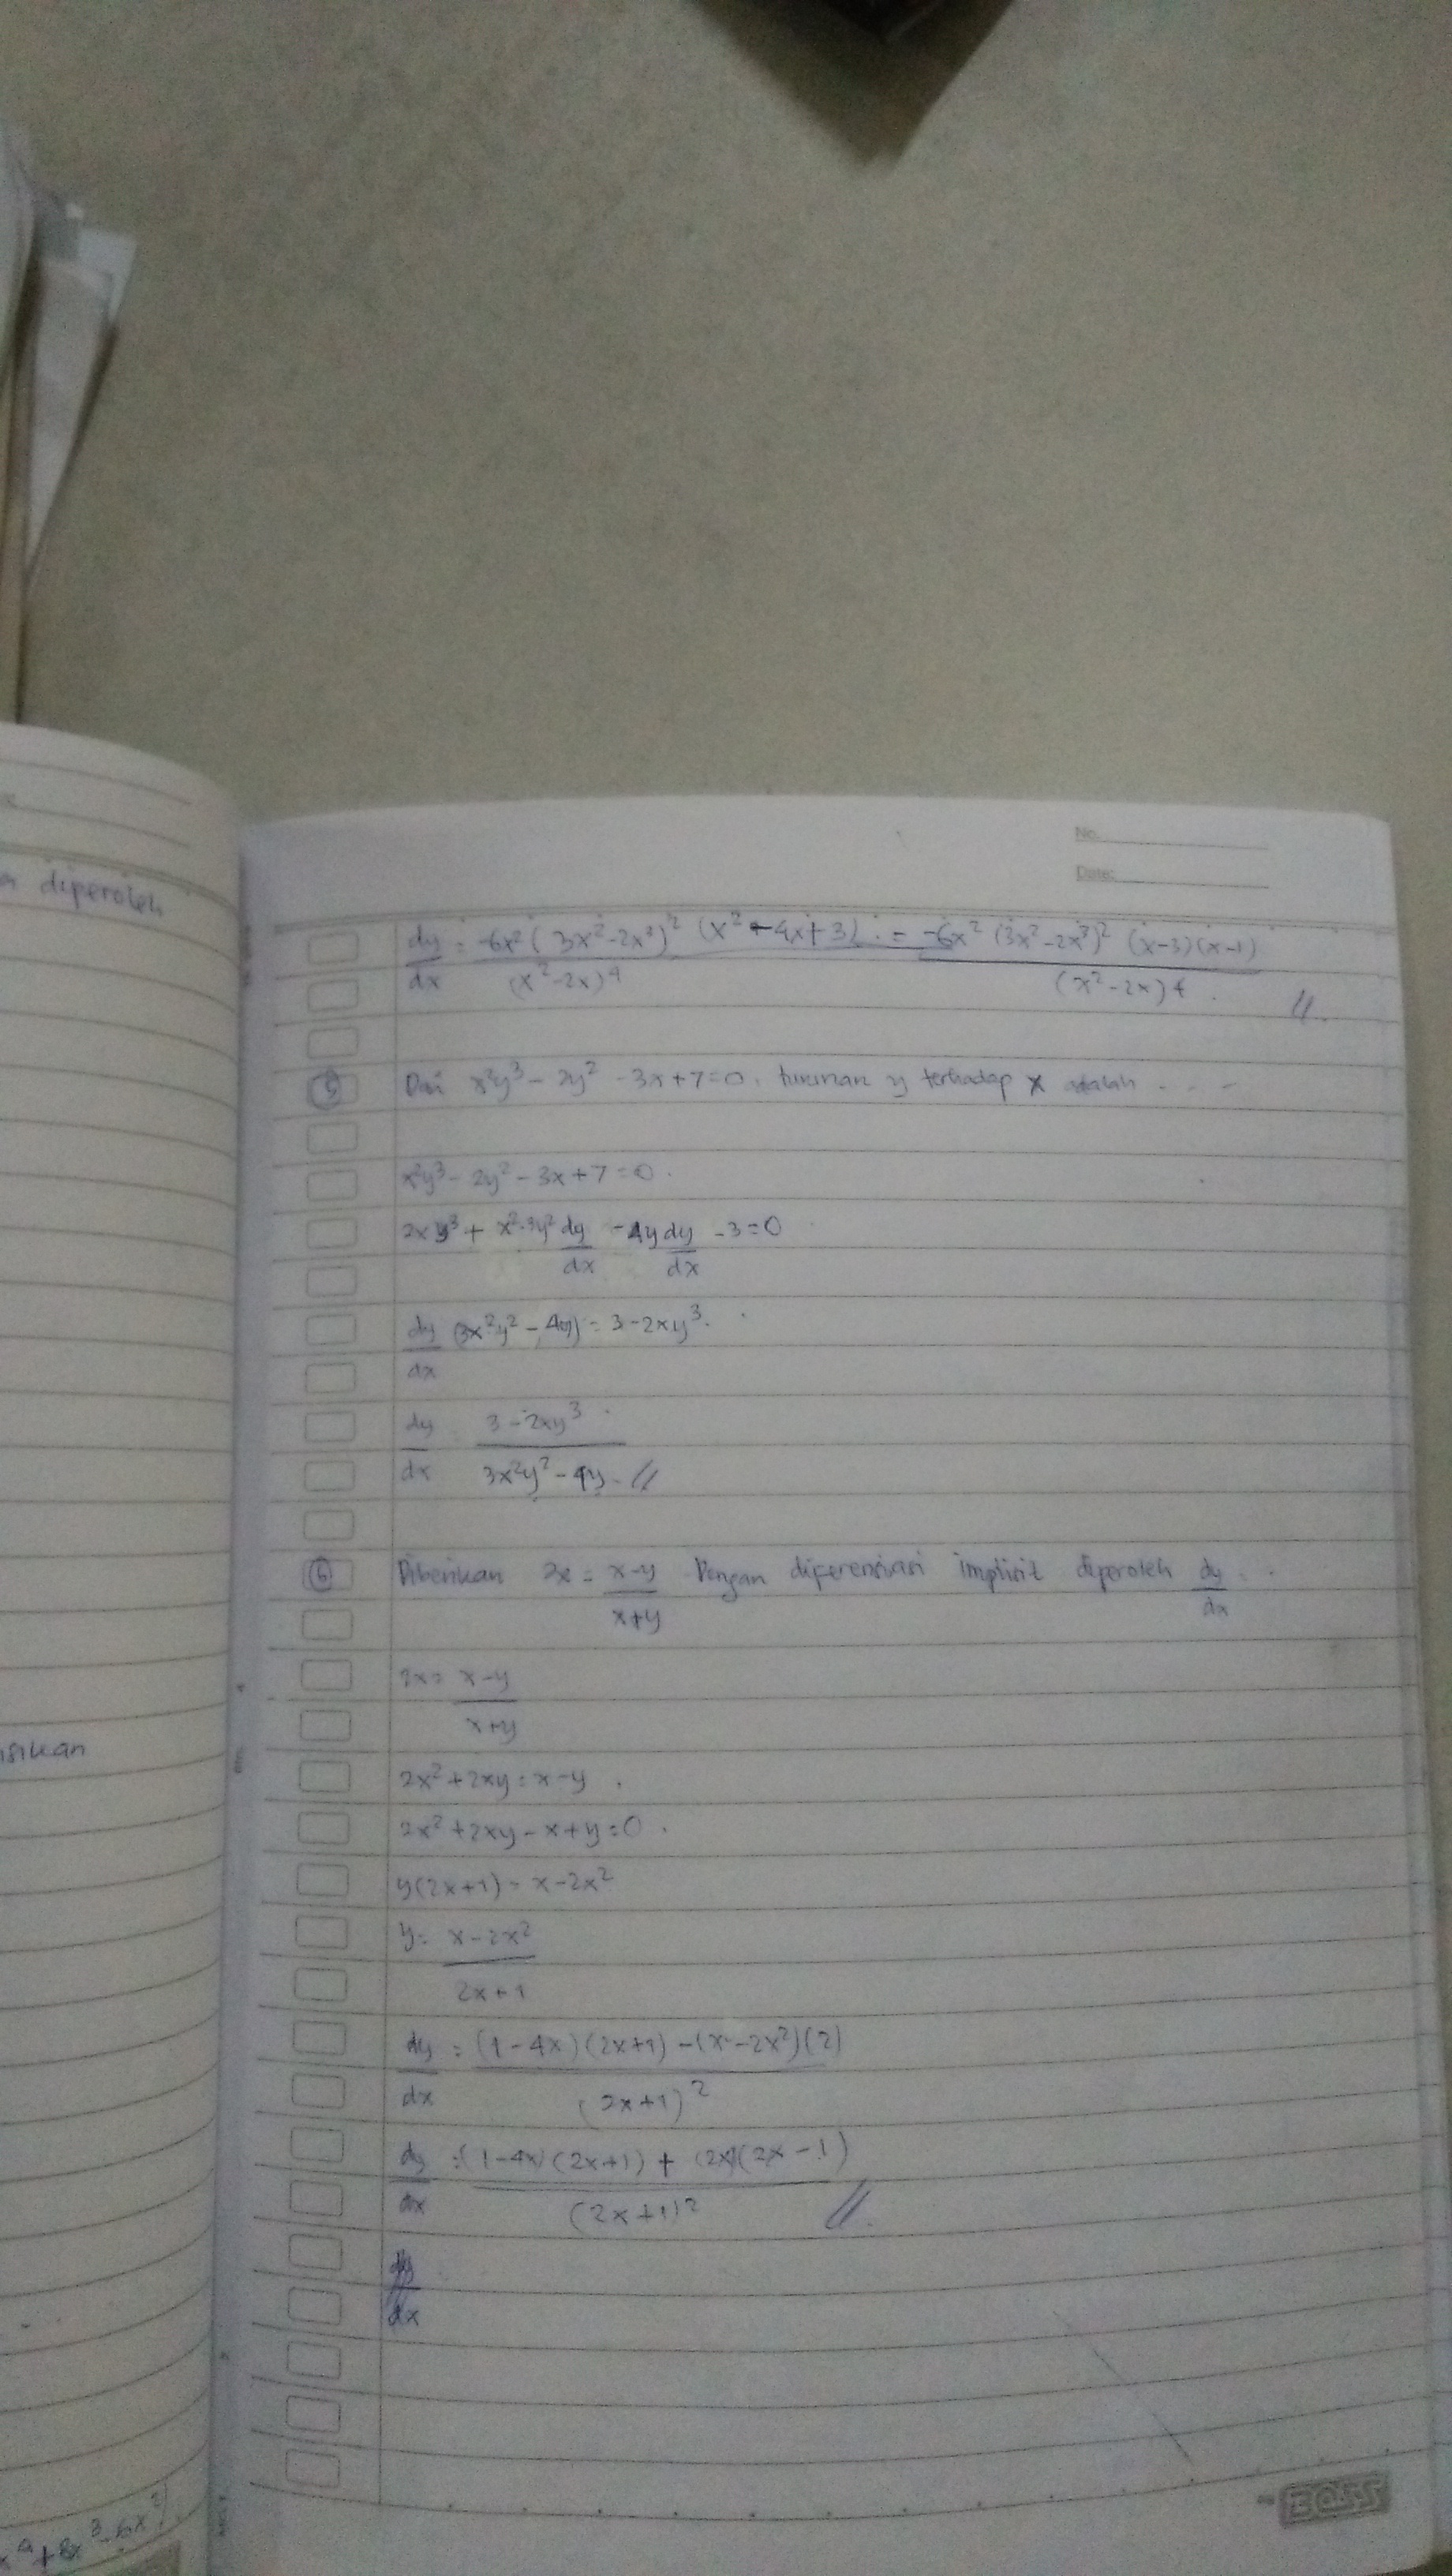 No.
Date:
a diperoleh
dy/dx = -6x² (3x²-2x³)² (x²-4x+3) / (x²-2x)⁴ = -6x² (3x²-2x³)² (x-3)(x-1) / (x²-2x)⁴ //.
⑤ Dari x²y³ - 2y² - 3x+7=0, turunan y terhadap x adalah . . . -
x²y³ - 2y² - 3x+7=0.
2xy³ + x²·3y² dy/dx - 4y dy/dx - 3=0
dy/dx (3x²y² - 4y) = 3-2xy³.
dy/dx = 3-2xy³ / 3x²y² - 4y. //
⑥ Diberikan 2x = x-y / x+y Dengan diferensiasi implisit diperoleh dy/dx . .
2x = x-y / x+y
isikan
2x²+2xy = x-y .
2x²+2xy-x+y=0 .
y(2x+1) = x-2x²
y = x-2x² / 2x+1
dy/dx = (1-4x)(2x+1) - (x-2x²)(2) / (2x+1)²
dy/dx = (1-4x)(2x+1) + (2x)(2x-1) / (2x+1)² //.
dy/dx
x⁴+8x³-6x²)
BOSS